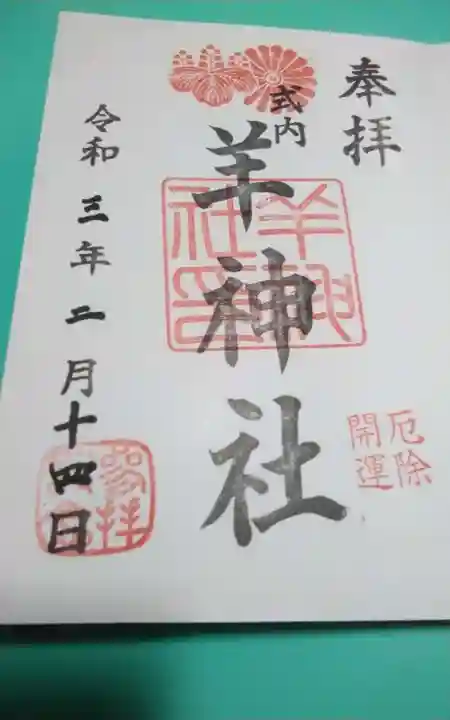 奉拝
式内
羊神社
羊神社印
厄除
開運
令和三年二月十四日